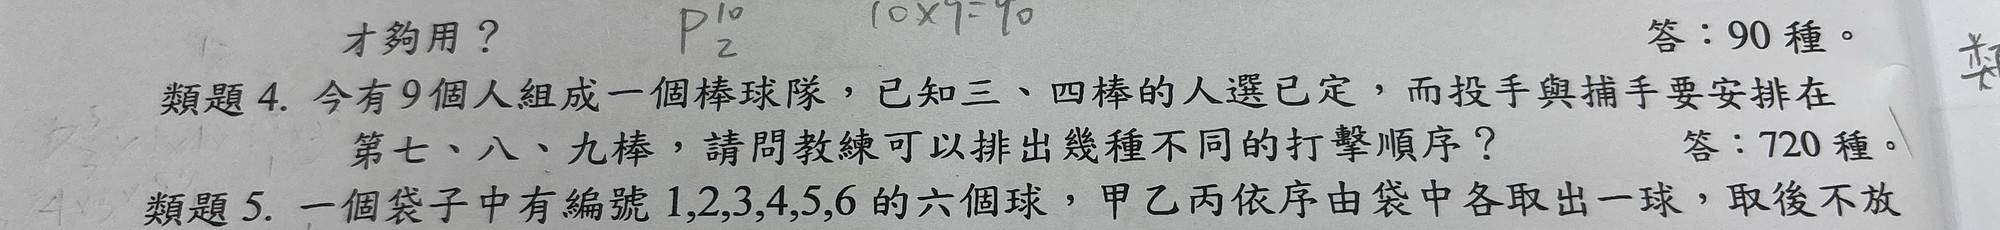 才夠用？ P¹⁰₂ 10×9=90 答：90 種。
類題 4. 今有9個人組成一個棒球隊，已知三、四棒的人選已定，而投手與捕手要安排在
第七、八、九棒，請問教練可以排出幾種不同的打擊順序？ 答：720 種。
類題 5. 一個袋子中有編號 1,2,3,4,5,6 的六個球，甲乙丙依序由袋中各取出一球，取後不放